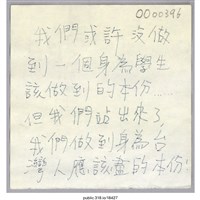 0000396
我們或許沒做
到一個身為學生
該做到的本份......
但我們站出來了
我們做到身為台
灣人應該盡的本份!
public.318.io/18427